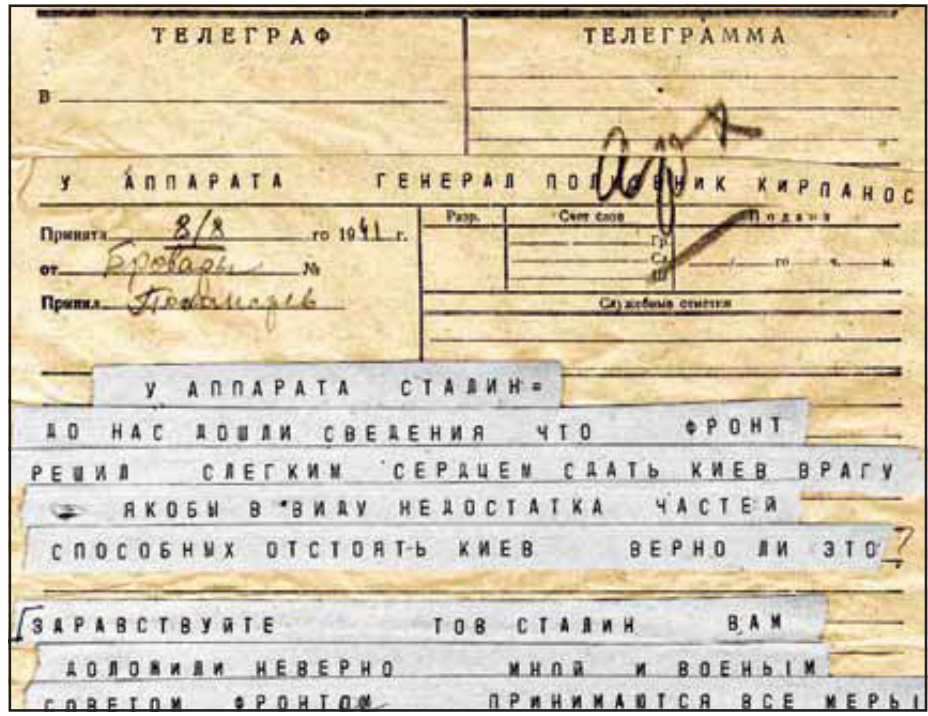 ТЕЛЕГРАФ
ТЕЛЕГРАММА
В
У АППАРАТА ГЕНЕРАЛ ПОЛКОВНИК КИРПАНОС
Принята 8/8 го 1941 г.
от Бровары №
Принял
Разр.
Счет слов
Гр.
Сл.
Подана
го ч. м.
Служебные отметки
У АППАРАТА СТАЛИН=
ДО НАС ДОШЛИ СВЕДЕНИЯ ЧТО ФРОНТ
РЕШИЛ СЛЕГКИМ СЕРДЦЕМ СДАТЬ КИЕВ ВРАГУ
ЯКОБЫ В ВИДУ НЕДОСТАТКА ЧАСТЕЙ
СПОСОБНЫХ ОТСТОЯТЬ КИЕВ ВЕРНО ЛИ ЭТО?
ЗДРАВСТВУЙТЕ ТОВ СТАЛИН ВАМ
ДОЛОЖИЛИ НЕВЕРНО МНОЙ И ВОЕНЫМ
СОВЕТОМ ФРОНТОМ ПРИНИМАЮТСЯ ВСЕ МЕРЫ